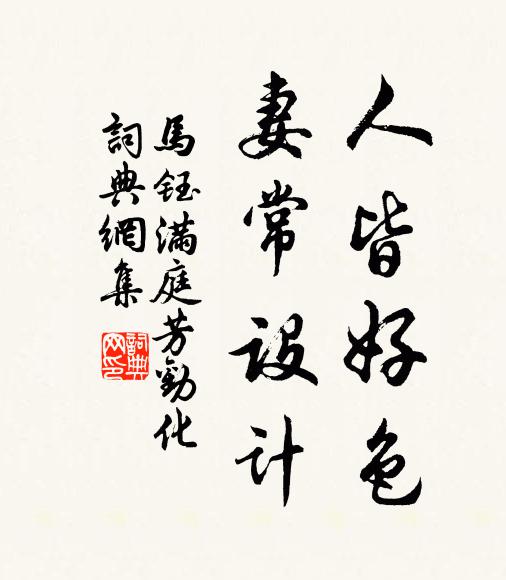 人皆好色
妻常設計
馬鈺滿庭芳勸化
詞典網集
詞典网印